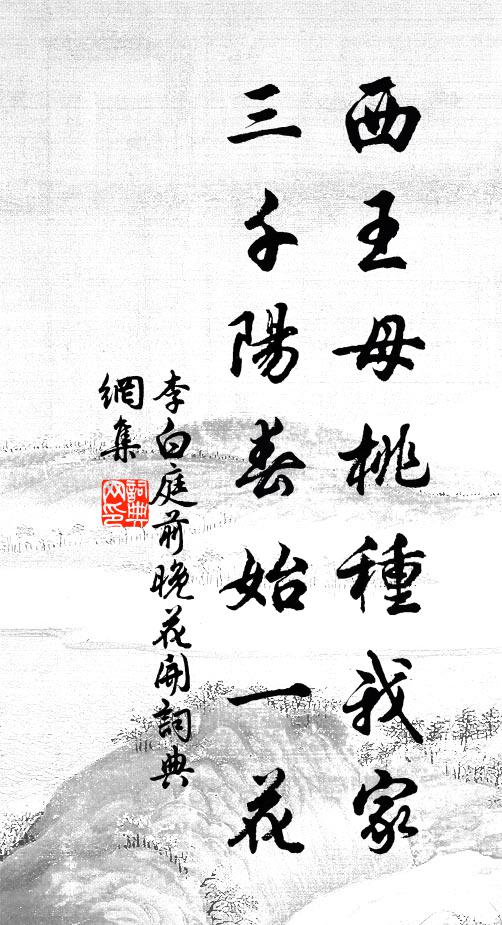 西王母桃種我家
三千陽春始一花
李白庭前晚花開詞典
網集
詞典
網印